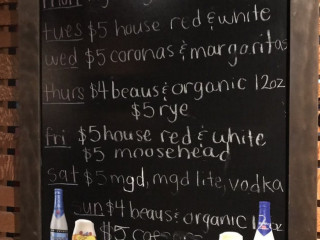 tues $5 house red & white
wed $5 coronas & margaritas
thurs $4 beaus & organic 12oz
$5 rye
fri $5 house red & white
$5 moosehead
sat $5 mgd, mgd lite, vodka
sun $4 beaus & organic 12oz
$5 caesars